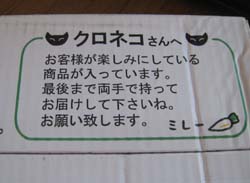 クロネコさんへ
お客様が楽しみにしている
商品が入っています。
最後まで両手で持って
お届けして下さいね。
お願い致します。
ミレー